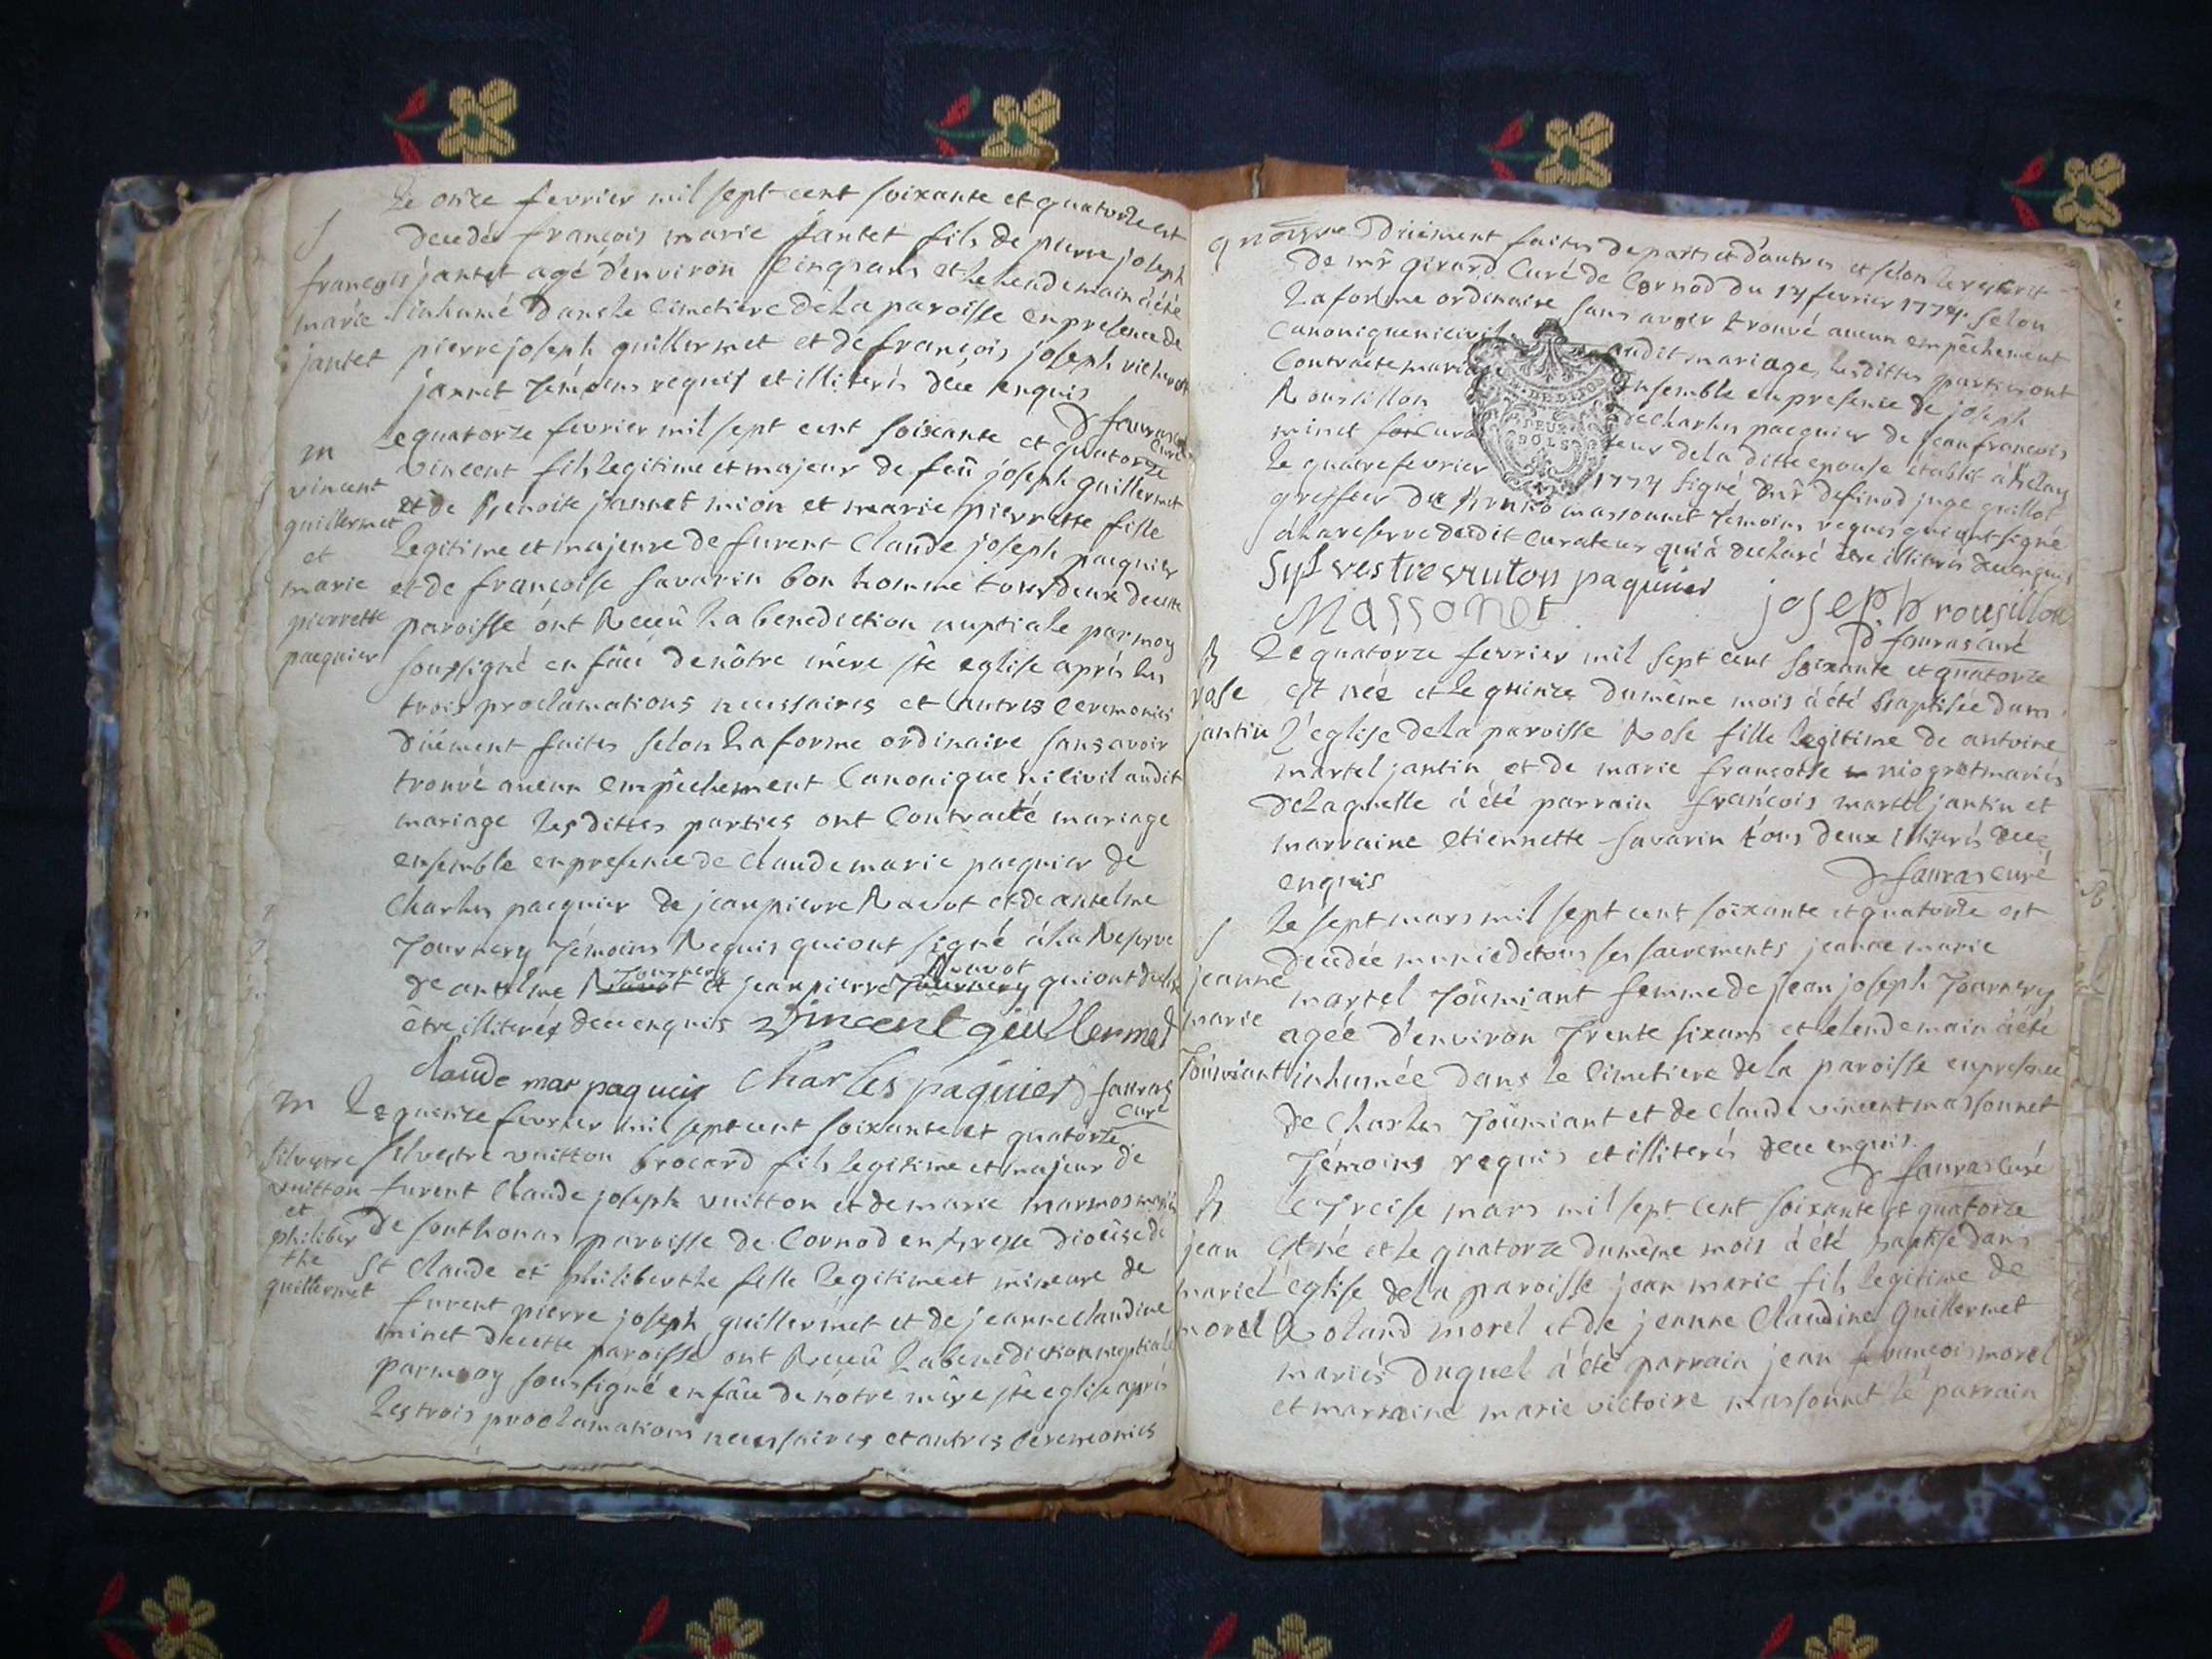 Le onze fevrier mil sept cent soixante et quatorze est
decedé françois marie jantet fils de pierre joseph
françois jantet agé d'environ cinq ans et le lendemain a été
marie inhumé dans le cimetiere de la paroisse en presence de
jantet pierre joseph guillermet et de françois joseph
jannet témoins requis et illiterés de ce enquis
D fauras
curé
m
Le quatorze fevrier mil sept cent soixante et quatorze
vincent
vincent fils legitime et majeur de feû joseph guillermet
guillermet
et de benoite jannet mion et marie pierrette fille
et
legitime et majeure de furent Claude joseph pacquier
marie
et de françoise savarin bon homme tous deux de cette
pierrette
paroisse ônt Receû la benediction nuptiale par moy
pacquier
soussigné en fâce de nôtre mêre ste eglise aprés les
trois proclamations necessaires et autres ceremonies
düement faites selon la forme ordinaire sans avoir
trouvé aucun empêchement Canonique ni civil audit
mariage les dittes parties ont Contracté mariage
ensemble en presence de Claude marie pacquier de
Charles pacquier de jean pierre Ravot et de antelme
Tournery Témoins Requis qui ont signé à la Reserve
Tournery Ravot
de antelme Ravot et jean pierre Tournery qui ont declaré
être illiterés de ce enquis vincent guillermet
Claude mar paquiey Charles paquier D fauras
curé
m
Le quinze fevrier mil sept cent soixante et quatorze
silvestre
silvestre vuitton brocard fils legitime et majeur de
vuitton
furent Claude joseph vuitton et de marie marmos mariés
et
de sonthonas paroisse de Cornod en bresse diocêse de
philiber
the
St Claude et philiberthe fille legitime et mineure de
guillermet
furent pierre joseph guillermet et de jeanne claudine
minet de cette paroisse ont Receû la benediction nuptiale
par moy soussigné en fâce de nôtre mêre ste eglise aprés
les trois proclamations necessaires et autres ceremonies
düement faites de parts et d'autres et selon le
de mr girard Curé de Cornod du 14 fevrier 1774 selon
la forme ordinaire sans avoir trouvé aucun empêchement
canonique ni civil audit mariage, les dittes parties ont
Contracté mariage ensemble en presence de joseph
Roussillon de Charles pacquier de jean francois
minet curateur de la ditte epouse établit à
le quatre fevrier 1774 signé mr juge guillot
greffier de massonnet Temoins requis qui ont signé
à la reserve dudit curateur qui à declaré être illiteré de ce enquis
Sylvestre vuiton paquier
Massonet joseph rousillon
D fauras curé
B
Le quatorze fevrier mil sept cent soixante et quatorze
rose
est née et le quinze du même mois à été baptisée dans
jantin
l'eglise de la paroisse Rose fille legitime de antoine
martel jantin et de marie françoise niogret mariés
de laquelle à été parrain françois martel jantin et
marraine etiennette savarin tous deux illiterés de ce
enquis
D fauras curé
S
le sept mars mil sept cent soixante et quatorze est
decedée munie de tous ses sacrements jeanne marie
jeanne
martel Toûmiant femme de jean joseph Tournery
marie
agée d'environ Trente six ans et le lendemain à été
Toûmiant
inhumée dans le cimetiere de la paroisse en presence
de Charles Toûmiant et de Claude vincent massonnet
Témoins requis et illiterés de ce enquis.
D fauras curé
B
Le Treise mars mil sept cent soixante et quatorze
jean
est né et le quatorze du même mois à été baptisé dans
marie
l'église de la paroisse jean marie fils legitime de
morel
Roland morel et de jeanne Claudine guillermet
mariés duquel à été parrain jean françois morel
et marraine marie victoire massonnet le parrain